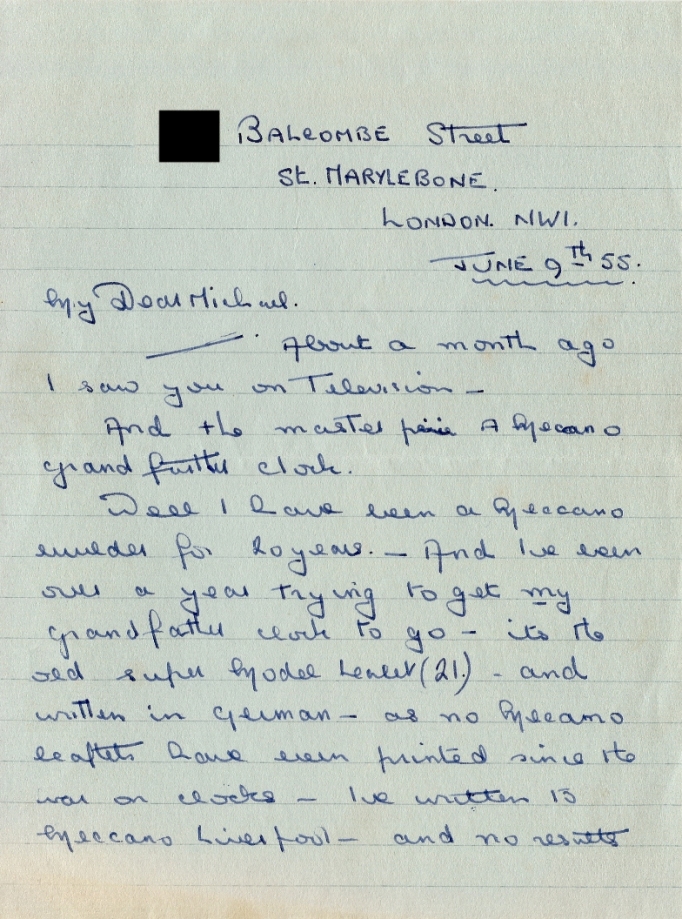 BALCOMBE Street
St. MARYLEBONE.
LONDON. NW1.
JUNE 9th 55.
My Dear Michael.
About a month ago
I saw you on Television –
And the master piece A Meccano
grand father clock.
Well I have been a Meccano
builder for 20 years. – And I've been
over a year trying to get my
grandfather clock to go – its the
old super Model Leaflet (21.) - and
written in German – as no Meccano
leaflets have been printed since the
war on clocks – I've written to
Meccano Liverpool – and no results